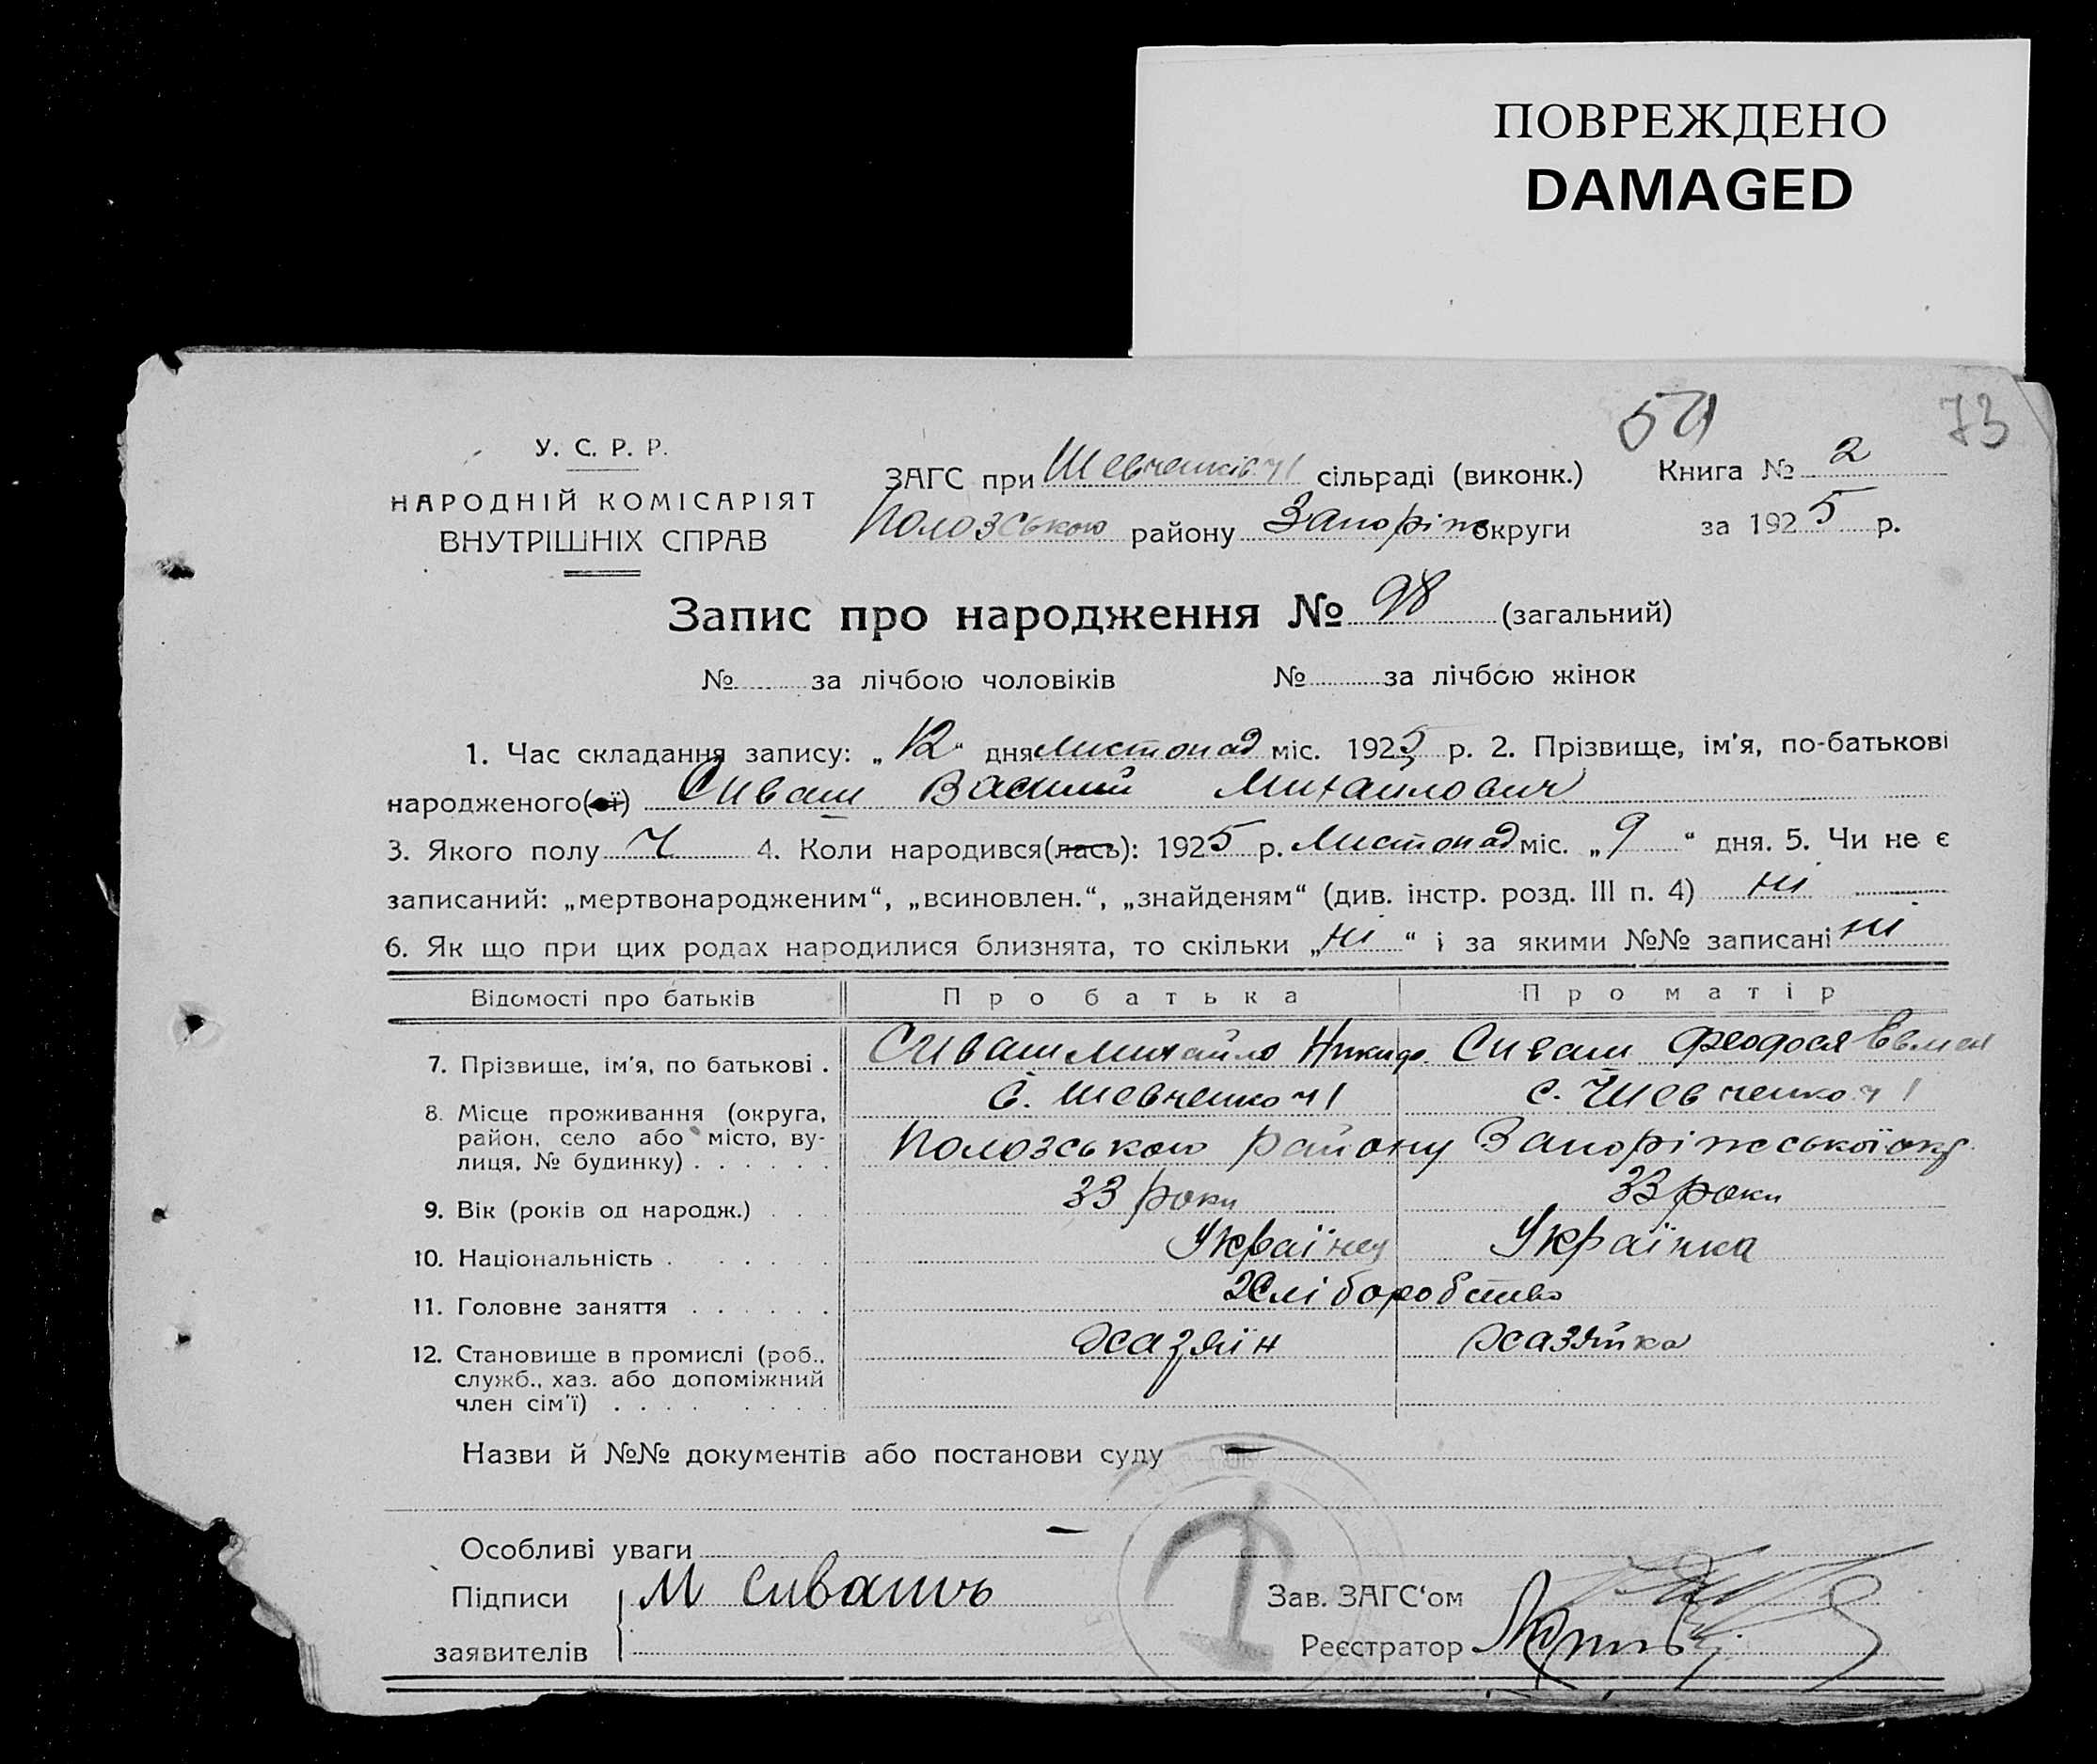 ПОВРЕЖДЕНО
DAMAGED
73
У. С. Р. Р.
НАРОДНІЙ КОМІСАРІЯТ
ВНУТРІШНІХ СПРАВ
ЗАГС при Шевченків. ч I сільраді (виконк.) Книга № 2
Полозською району Запоріж округи за 1925 р.
Запис про народження № 98 (загальний)
№ за лічбою чоловіків № за лічбою жінок
1. Час складання запису: „12“ дня листопад міс. 1925 р. 2. Прізвище, ім'я, по-батькові
народженого(ої) Сиваш Василий Михайлович
3. Якого полу Ч 4. Коли народився(лась): 1925 р. Листопад міс. „9“ дня. 5. Чи не є
записаний: „мертвонародженим“, „всиновлен.“, „знайденям“ (див. інстр. розд. III п. 4) ні
6. Як що при цих родах народилися близнята, то скільки „ні“ і за якими №№ записані ні
Відомості про батьків Про батька Про матір
7. Прізвище, ім'я, по батькові . Сиваш Михайло Никиф. Сиваш Феодося Евмен
8. Місце проживання (округа, с. Шевченко ч I с. Шевченко ч I
район, село або місто, ву-
лиця, № будинку) . . . . . . Полозською району Запоріжської окр.
9. Вік (років од народж.) . . . 33 роки 33 роки
10. Національність . . . . . . Українец Українка
11. Головне заняття . . . . . . Хліборобство
12. Становище в промислі (роб., хазяїн хазяйка
служб., хаз. або допоміжний
член сім'ї) . . . . . . . .
Назви й №№ документів або постанови суду —
Особливі уваги —
Підписи М Сивашъ Зав. ЗАГС‘ом
заявителів Реєстратор